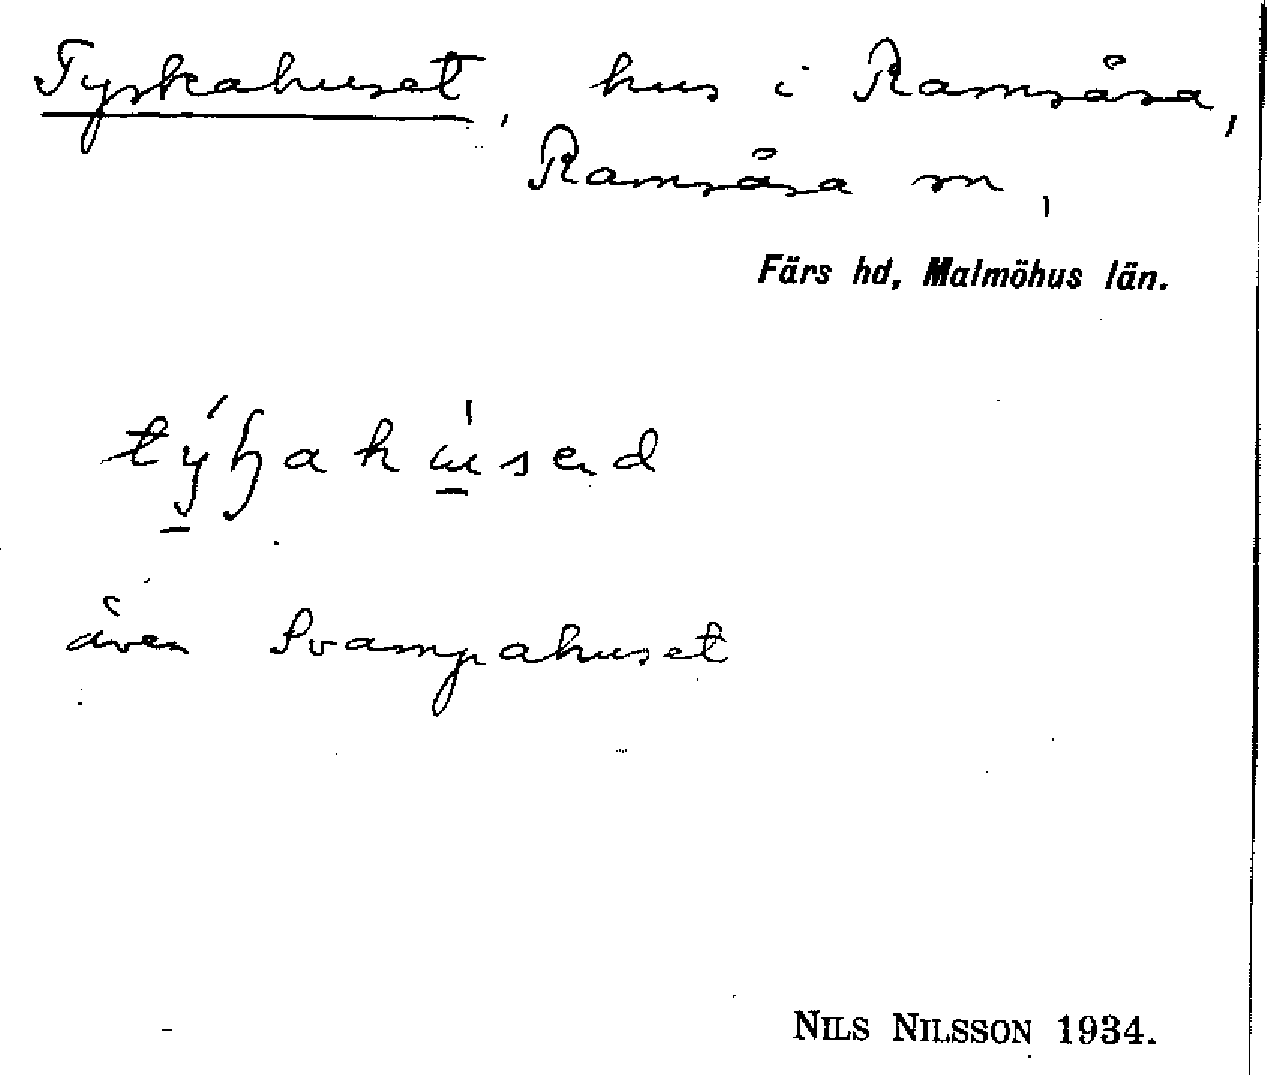 Tyskahuset, hus i Ramsåsa,
Ramsåsa sn,
Färs hd, Malmöhus län.
även Svampahuset
NILS NILSSON 1934.